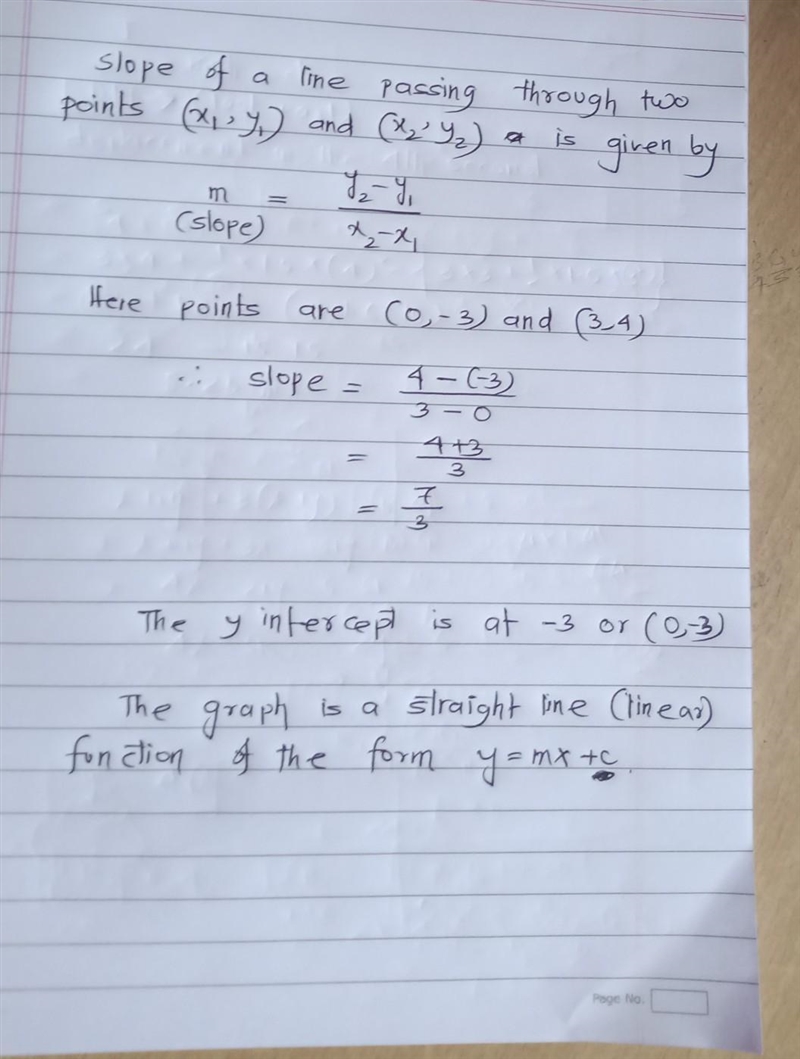 Slope of a line passing through two
points (x₁, y₁) and (x₂, y₂) is given by
m = y₂-y₁
(slope) x₂-x₁
Here points are (0,-3) and (3,4)
∴ slope = 4-(-3)
3-0
= 4+3
3
= 7
3
The y intercept is at -3 or (0,-3)
The graph is a straight line (linear)
function of the form y=mx+c.
Page No.